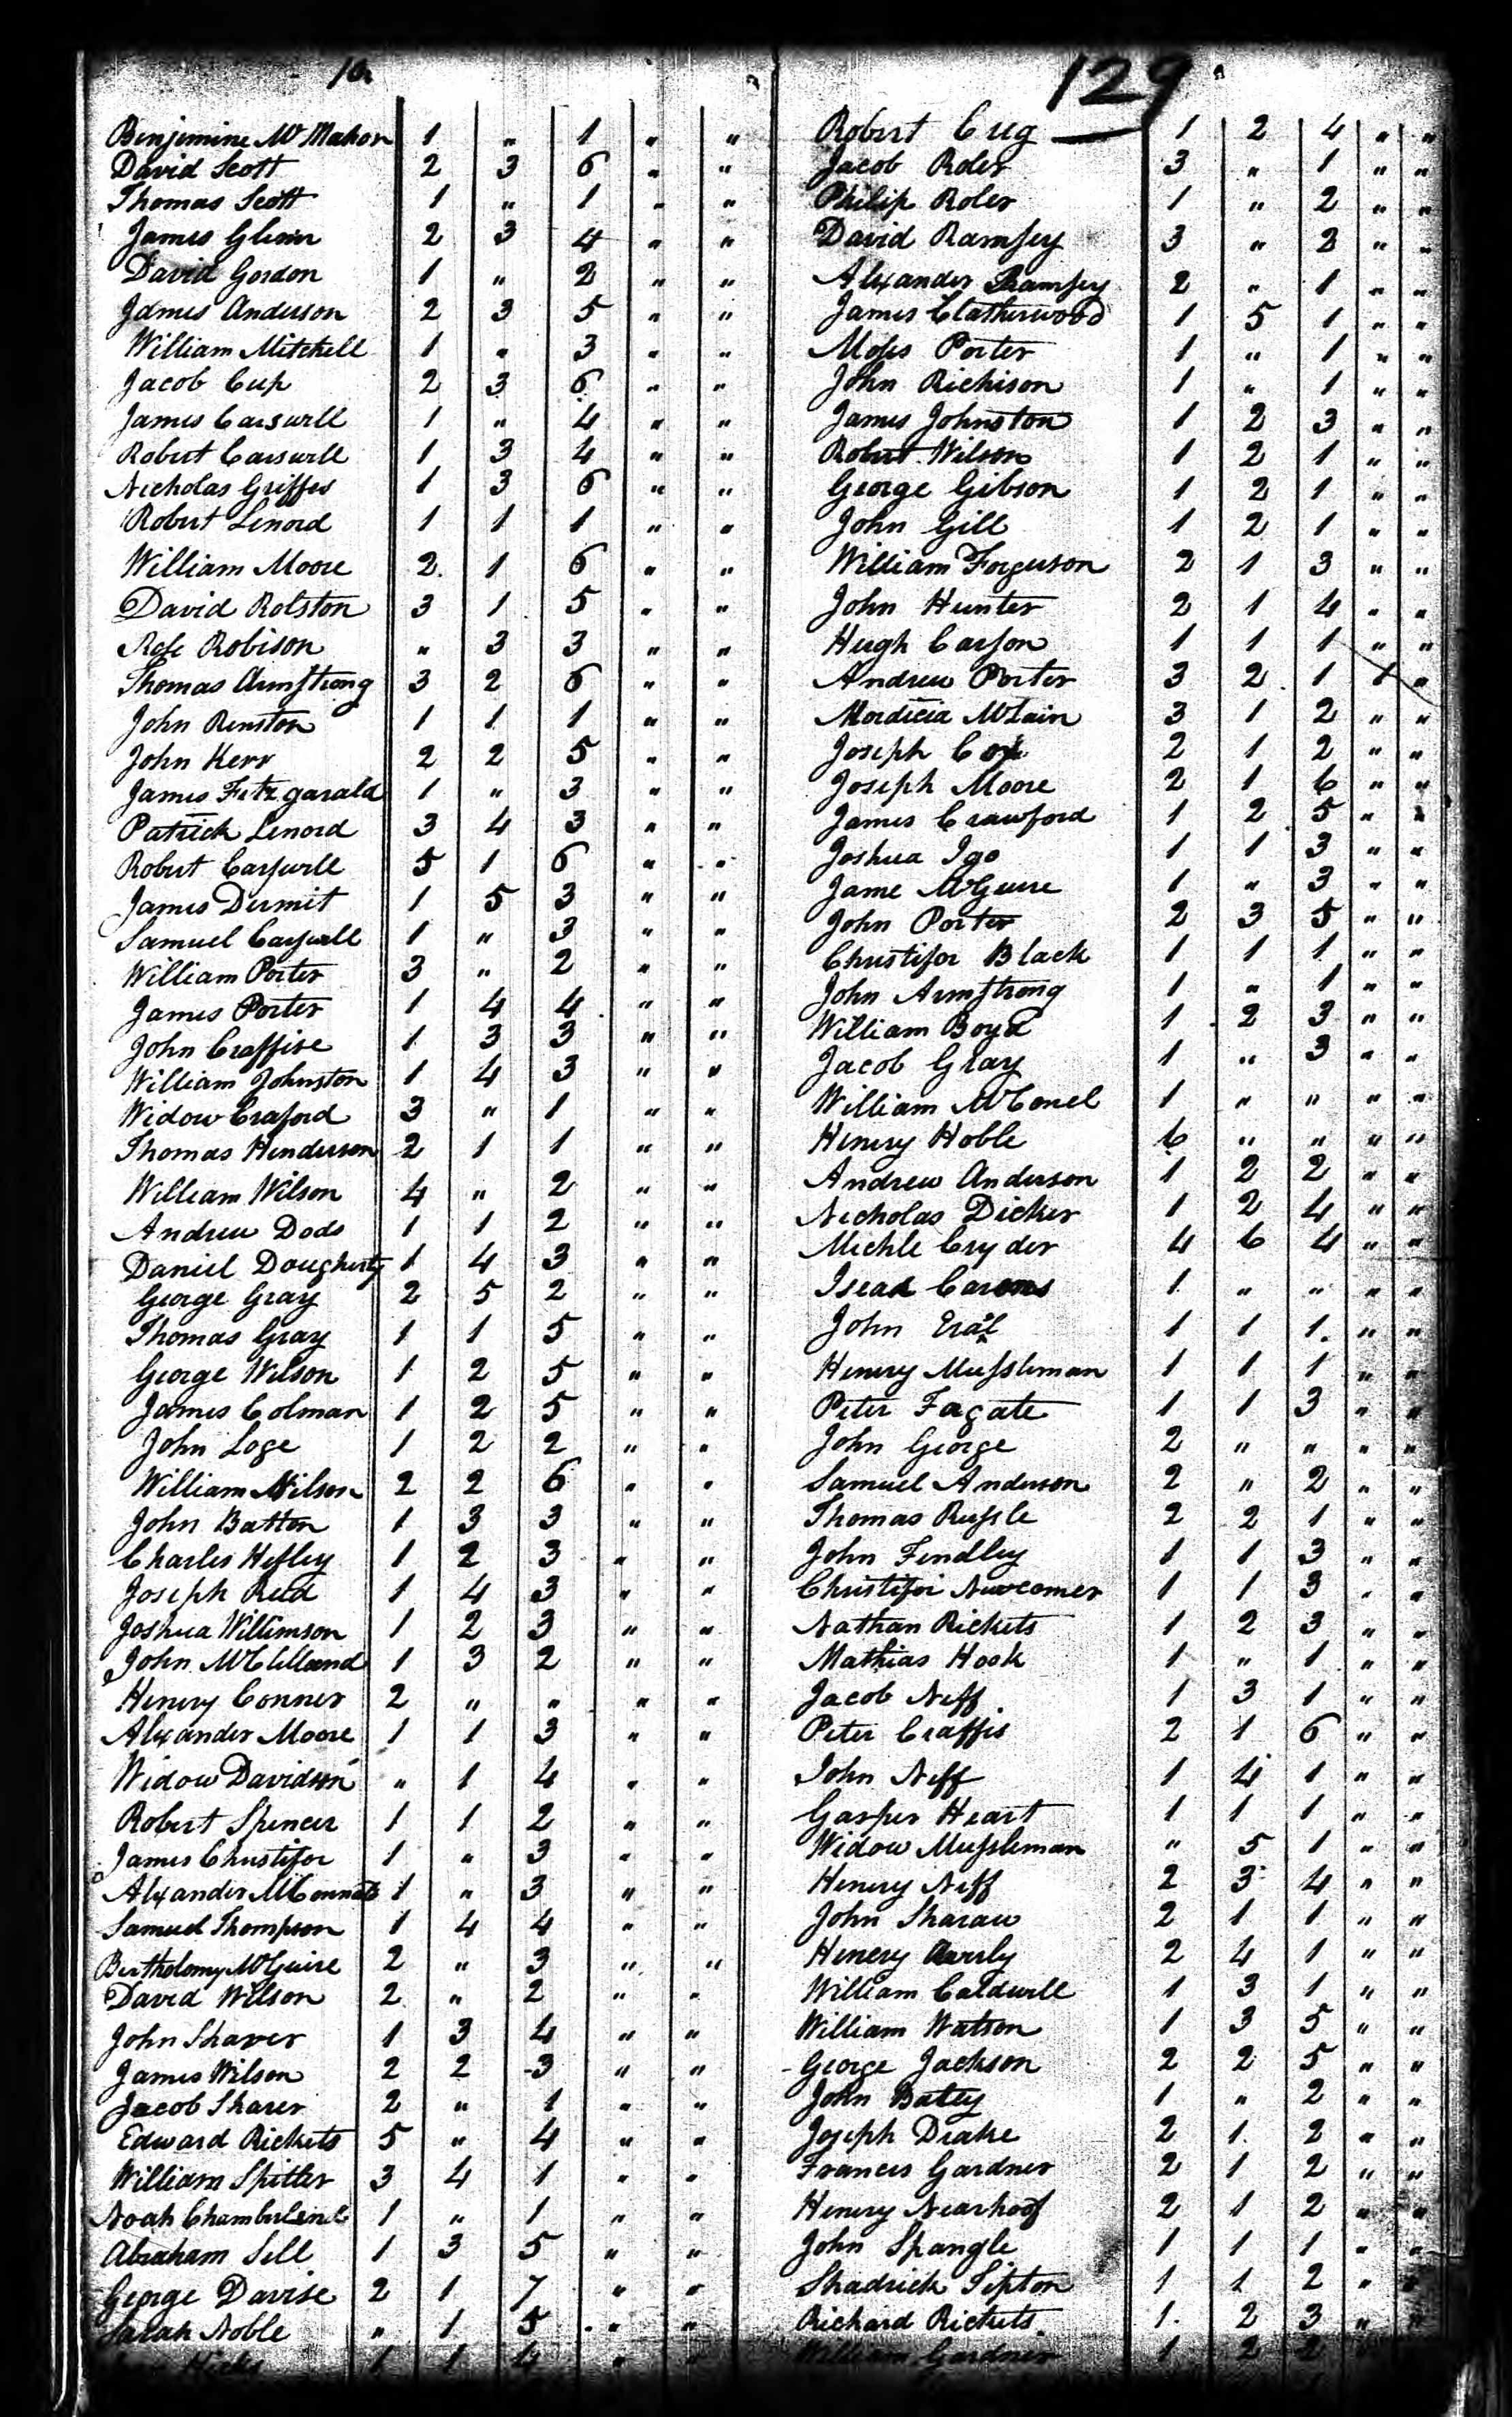 129
Benjemine McMahon 1 " 1 " "
David Scott 2 3 6 " "
Thomas Scott 1 " 1 " "
James Glenn 2 3 4 " "
David Gordon 1 " 2 " "
James Anderson 2 3 5 " "
William Mitchell 1 " 3 " "
Jacob Cup 2 3 6 " "
James Carswell 1 " 4 " "
Robert Carswell 1 3 4 " "
Nicholas Griffes 1 3 6 " "
Robert Lenord 1 1 1 " "
William Moore 2 1 6 " "
David Rolston 3 1 5 " "
Rose Robison " 3 3 " "
Thomas Armstrong 3 2 6 " "
John Renston 1 1 1 " "
John Kerr 2 2 5 " "
James Fitzgarald 1 " 3 " "
Patrick Lenord 3 4 3 " "
Robert Carswell 5 1 6 " "
James Dermit 1 5 3 " "
Samuel Carswell 1 " 3 " "
William Porter 3 " 2 " "
James Porter 1 4 4 " "
John Craffise 1 3 3 " "
William Johnston 1 4 3 " "
Widow Craford 3 " 1 " "
Thomas Henderson 2 1 1 " "
William Wilson 4 " 2 " "
Andrew Dods 1 1 2 " "
Daniel Dougherty 1 4 3 " "
George Gray 2 5 2 " "
Thomas Gray 1 1 5 " "
George Wilson 1 2 5 " "
James Colman 1 2 5 " "
John Loge 1 2 2 " "
William Wilson 2 2 6 " "
John Batton 1 3 3 " "
Charles Hefley 1 2 3 " "
Joseph Reed 1 4 3 " "
Joshua Willimson 1 2 3 " "
John McClelland 1 3 2 " "
Henery Conner 2 " " " "
Alexander Moore 1 1 3 " "
Widow Davidson " 1 4 " "
Robert Spencer 1 1 2 " "
James Christifor 1 " 3 " "
Alexander 1 " 3 " "
Samuel Thompson 1 4 4 " "
Bartholomy McGuire 2 " 3 " "
David Wilson 2 " 2 " "
John Shaver 1 3 4 " "
James Wilson 2 2 3 " "
Jacob Sharer 2 " 1 " "
Edward Rickets 5 " 4 " "
William Spitler 3 4 1 " "
Noah Chamberlin 1 " 1 " "
Abraham Sell 1 3 5 " "
George Davise 2 1 7 " "
Sarah Noble " 1 5 " "
Hicks 1 1 4 " "
Robert Cug 1 2 4 " "
Jacob Roler 3 " 1 " "
Philip Roler 1 " 2 " "
David Ramsey 3 " 2 " "
Alexander Ramsey 2 " 1 " "
James Clatherwood 1 5 1 " "
Moses Porter 1 " 1 " "
John Richison 1 " 1 " "
James Johnston 1 2 3 " "
Robert Wilson 1 2 1 " "
George Gibson 1 2 1 " "
John Gill 1 2 1 " "
William Forguson 2 1 3 " "
John Hunter 2 1 4 " "
Hugh Carson 1 1 1 " "
Andrew Porter 3 2 1 1 "
Mordicia McLain 3 1 2 " "
Joseph Cox 2 1 2 " "
Joseph Moore 2 1 6 " "
James Crawford 1 2 5 " "
Joshua Igo 1 1 3 " "
Jame McGuire 1 " 3 " "
John Porter 2 3 5 " "
Christifor Black 1 1 1 " "
John Armstrong 1 " 1 " "
William Boyd 1 2 3 " "
Jacob Gray 1 " 3 " "
William McConel 1 " " " "
Henery Hoble 6 " " " "
Andrew Anderson 1 2 2 " "
Nicholas Dicker 1 2 4 " "
Michle Cryder 4 6 4 " "
Isead 1 " " " "
John 1 1 1 " "
Henery Mussleman 1 1 1 " "
Peter Fagate 1 1 3 " "
John George 2 " " " "
Samuel Anderson 2 " 2 " "
Thomas Russle 2 2 1 " "
John Findley 1 1 3 " "
Christifor Newcomer 1 1 3 " "
Nathan Rickets 1 2 3 " "
Mathias Hook 1 " 1 " "
Jacob Neff 1 3 1 " "
Peter Craffis 2 1 6 " "
John Neff 1 4 1 " "
Gasper Heart 1 1 1 " "
Widow Mussleman " 5 1 " "
Henery Neff 2 3 4 " "
John Sharaw 2 1 1 " "
Henery 2 4 1 " "
William Caldwell 1 3 1 " "
William Watson 1 3 5 " "
George Jackson 2 2 5 " "
John Batey 1 " 2 " "
Joseph Drake 2 1 2 " "
Francis Gardner 2 1 2 " "
Henery Nearhoof 2 1 2 " "
John Spangle 1 1 1 " "
Shadrick Tipton 1 1 2 " "
Richard Rickets 1 2 3 " "
William Gardner 1 2 2 " "